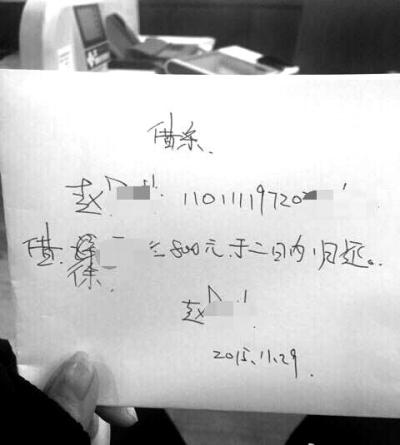 借条.
赵 11011119720
借 徐 800元于二日内归还。
赵
2015.11.29.